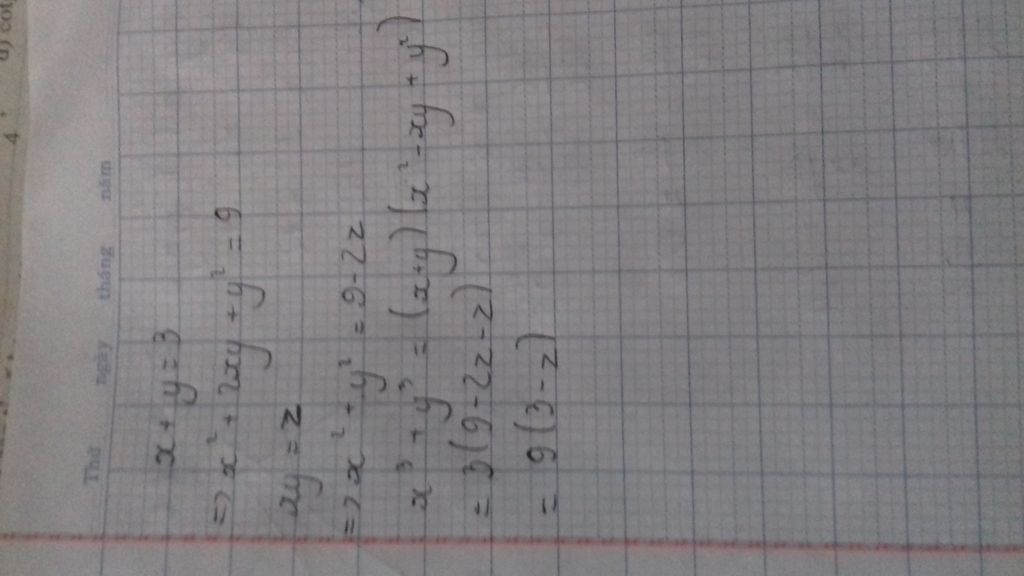 Thứ ngày tháng năm
x + y = 3
=> x² + 2xy + y² = 9
xy = z
=> x² + y² = 9 - 2z
x³ + y³ = (x+y)(x² - xy + y²)
= 3(9 - 2z - z)
= 9(3 - z)